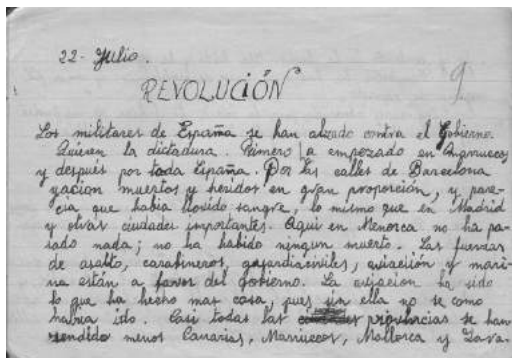 22- Julio.
REVOLUCIÓN
9
Los militares de España se han alzado contra el Gobierno.
Quieren la dictadura. Primero a empezado en Marruecos
y después por toda España. Por las calles de Barcelona
yacian muertos y heridos en gran proporción, y pare-
cia que habia llovido sangre, lo mismo que en Madrid
y otras ciudades importantes. Aqui en Menorca no ha pa-
sado nada; no ha habido ningun muerto. Las fuerzas
de asalto, carabineros, guardiasciviles, aviación y mari-
na están a favor del gobierno. La aviacion ha sido
lo que ha hecho mas cosa, pues sin ella no se como
habria ido. Casi todas las provincias se han
rendido menos Canarias, Marruecos, Mallorca y Zara-